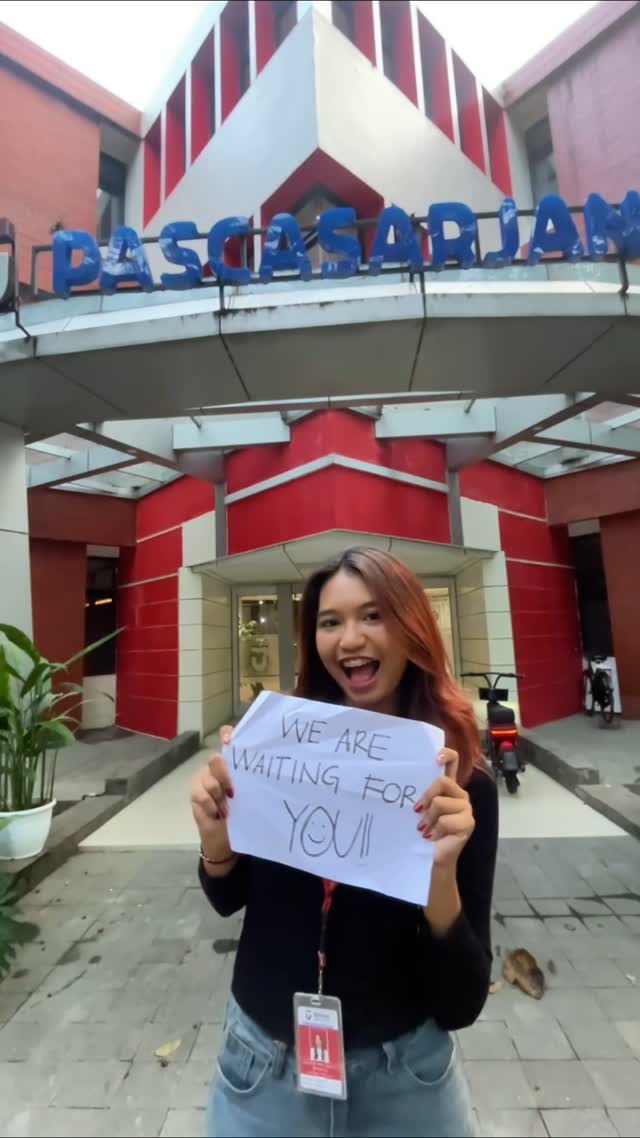 PASCASARJAN
WE ARE
WAITING FOR
YOU!!